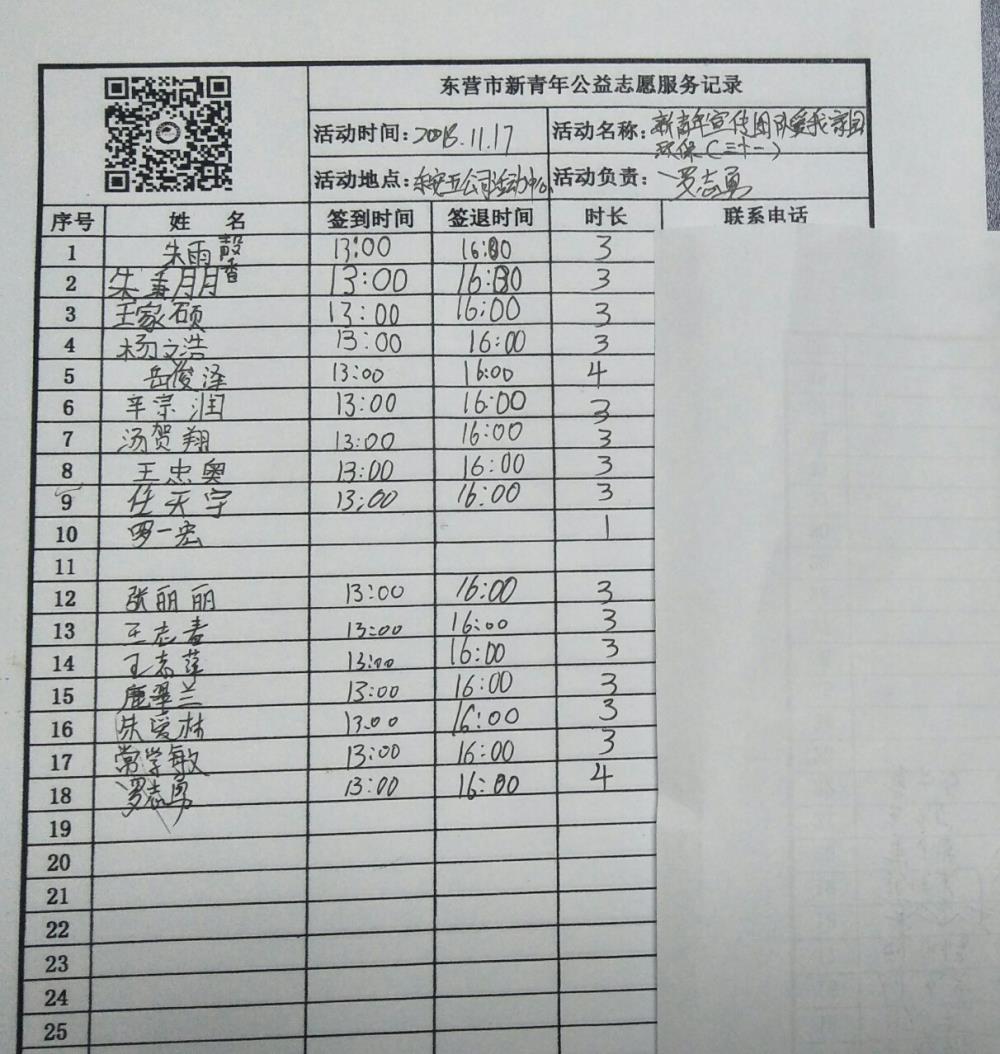 东营市新青年公益志愿服务记录
活动时间：2018.11.17 活动名称：新青年宣传团队爱我家园
环保（三十一）
活动地点： 活动负责：罗志勇
序号 姓 名 签到时间 签退时间 时长 联系电话
1 朱雨馨 13:00 16:00 3
2 朱 13:00 16:00 3
3 王家硕 13:00 16:00 3
4 杨文浩 13:00 16:00 3
5 岳俊泽 13:00 16:00 4
6 辛宗润 13:00 16:00 3
7 汤贺翔 13:00 16:00 3
8 王忠奥 13:00 16:00 3
9 任天宇 13:00 16:00 3
10 罗一宏 1
11
12 张丽丽 13:00 16:00 3
13 王志春 13:00 16:00 3
14 王志萍 13:00 16:00 3
15 鹿翠兰 13:00 16:00 3
16 朱爱林 13:00 16:00 3
17 常学敏 13:00 16:00 3
18 罗志勇 13:00 16:00 4
19
20
21
22
23
24
25